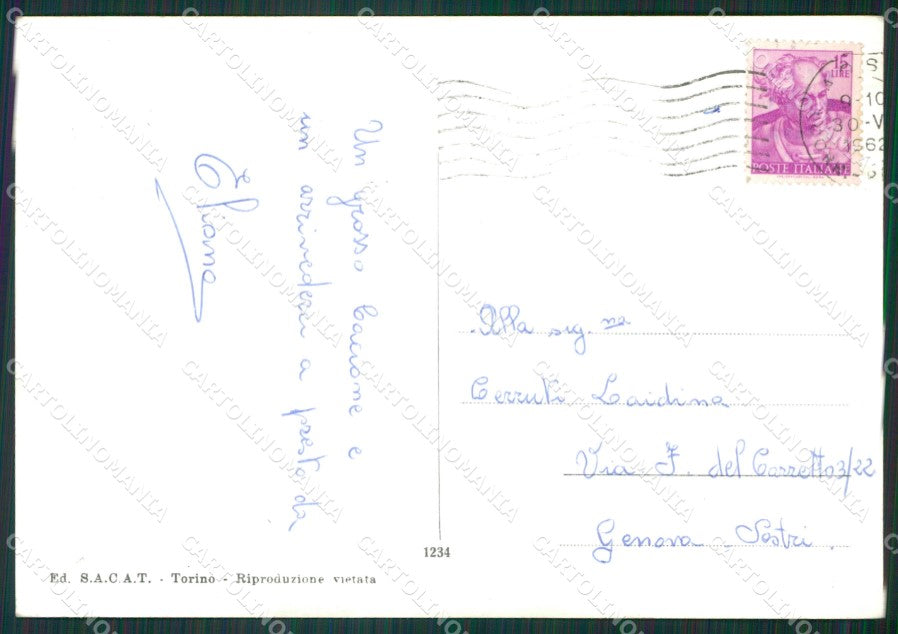 Un grosso bacione e
un arrivederci a presto da
Eliana
15
LIRE
POSTE ITALIANE
9-10
30-V
1962
Alla sig.na
Cerruti Laidina
Via F. del Carretto 3/22
Genova - Sestri
1234
Ed. S.A.C.A.T. - Torino - Riproduzione vietata
CARTOLINOMANIA